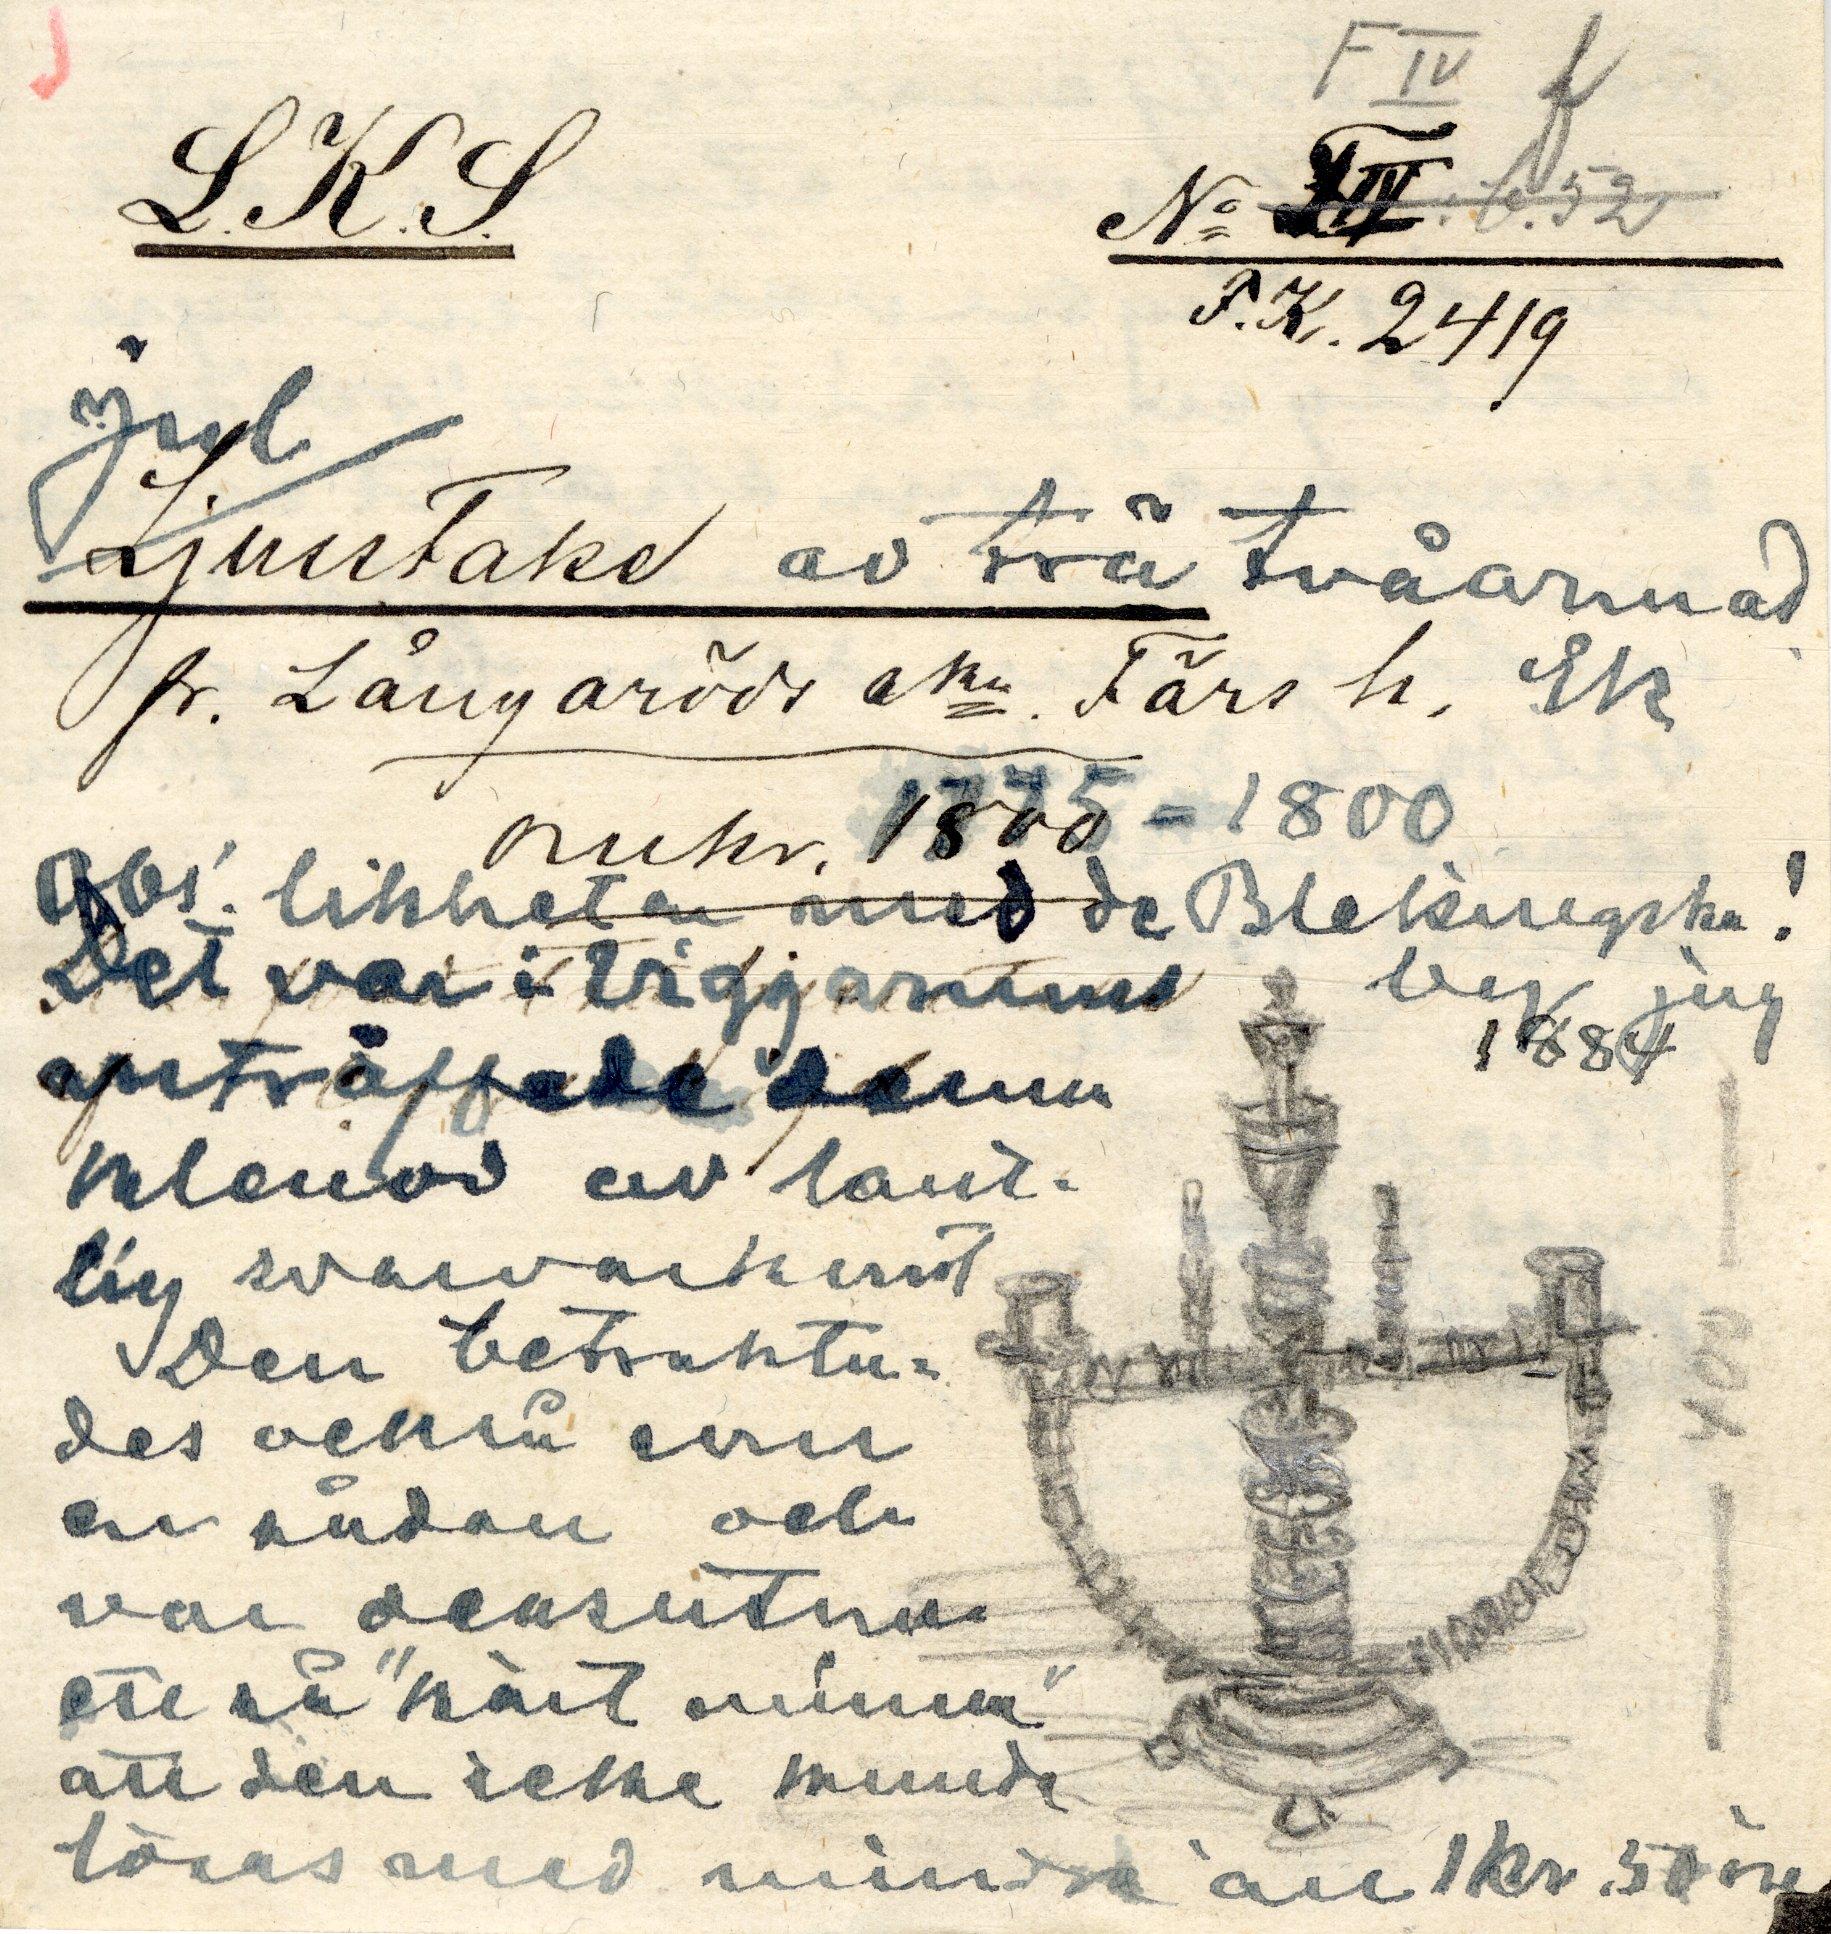 F IV f
L.K.S.
No F IV: b.52
P.K. 2419
Jul
Ljusstake av trä tvåarmad
fr. Långaröds skn. Färs h. Ek
omkr. 1775-1800
Obs! likheten med de Blekingska!
Det var i Viggarum beg jag
1884
anträffade denna
klenod av lant-
lig svarvarkunst
Den betraktu-
des också som
en sådan och
var dessutom
ett så "kärt minne"
att den icke kunde
lösas med mindre än 1 kr. 50 öre